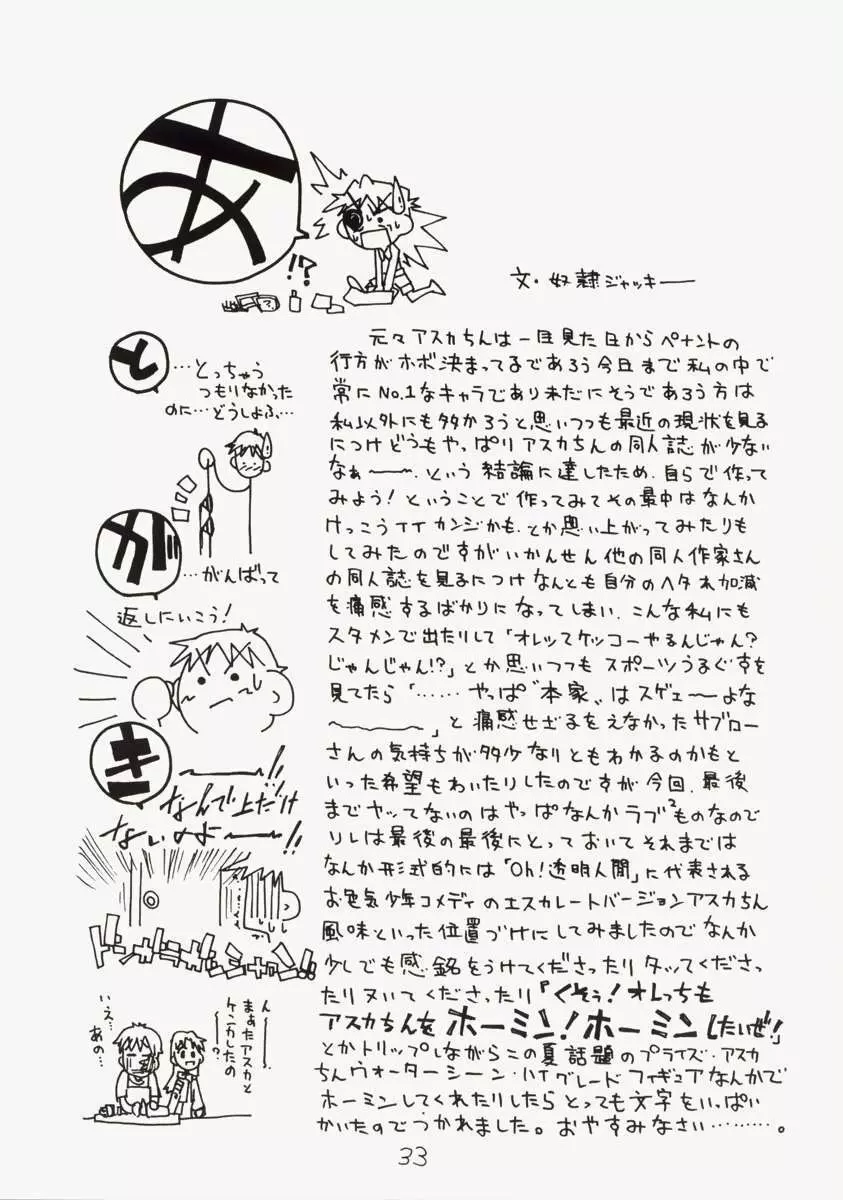 あ
!?
文・奴隷ジャッキー
と
…とっちゃう
つもりなかった
のに…どうしよふ…
が
…がんばって
返しにいこう!
き
なんで上だけ
ないのよーーー!!
ん〜
まぁたアスカと
ケンカしたの
〜?
いえ、
あの…
元々アスカちんは一目見た日からペナントの
行方がホボ決まってるであろう今日まで私の中で
常にNo.1なキャラであり未だにそうであろう方は
私以外にも多かろうと思いつつも最近の現状を見る
につけどうもやっぱりアスカちんの同人誌が少ない
なぁ〜〜。という結論に達したため、自らで作って
みよう!ということで作ってみてその最中はなんか
けっこうイイカンジかも、とか思い上がってみたりも
してみたのですがいかんせん他の同人作家さん
の同人誌を見るにつけなんとも自分のヘタれ加減
を痛感するばかりになってしまい、こんな私にも
スタメンで出たりして「オレってケッコーやるんじゃん?
じゃんじゃん!?」とか思いつつもスポーツうるぐすを
見てたら「……やっぱ〝本家〟はスゲェ〜よな
〜〜〜〜」と痛感せざるをえなかったサブロー
さんの気持ちが多少なりともわかるのかもと
いった希望もわいたりしたのですが今回、最後
までヤッてないのはやっぱなんかラブ²ものなので
ソレは最後の最後にとっておいてそれまでは
なんか形式的には「Oh!透明人間」に代表される
お色気少年コメディのエスカレートバージョンアスカちん
風味といった位置づけにしてみましたのでなんか
少しでも感銘をうけてくださったりタッてくださっ
たりヌいてくださったり『くそぅ!オレっちも
アスカちんをホーミン!ホーミンしたいぜ!』
とかトリップしながらこの夏話題のプライズ・アスカ
ちんウォーターシーン・ハイグレードフィギュアなんかで
ホーミンしてくれたりしたらとっても文字をいっぱい
かいたのでつかれました。おやすみなさい………。
33